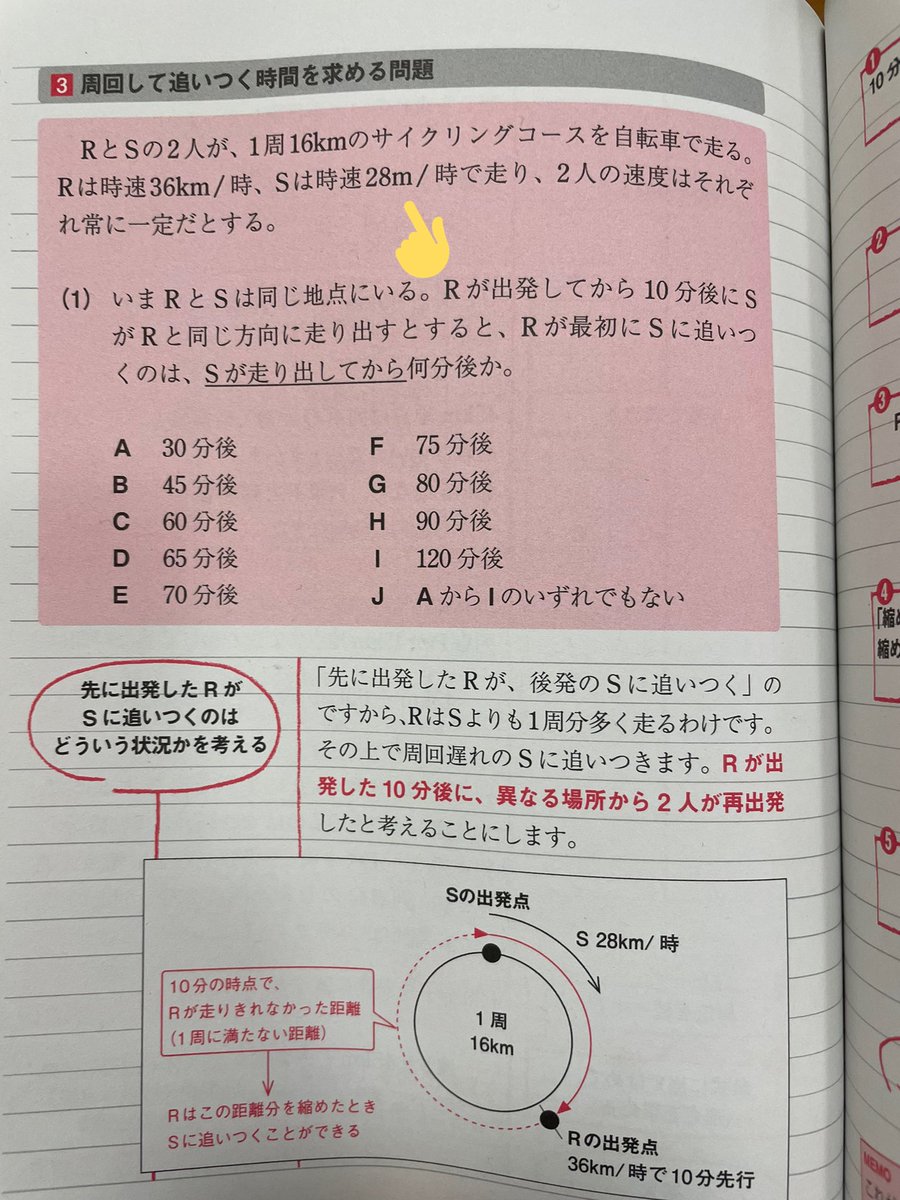 3 周回して追いつく時間を求める問題
RとSの2人が、1周16kmのサイクリングコースを自転車で走る。
Rは時速36km/時、Sは時速28m/時で走り、2人の速度はそれぞ
れ常に一定だとする。
(1) いまRとSは同じ地点にいる。Rが出発してから10分後にS
がRと同じ方向に走り出すとすると、Rが最初にSに追いつ
くのは、Sが走り出してから何分後か。
A 30分後 F 75分後
B 45分後 G 80分後
C 60分後 H 90分後
D 65分後 I 120分後
E 70分後 J AからIのいずれでもない
先に出発したRが
Sに追いつくのは
どういう状況かを考える
「先に出発したRが、後発のSに追いつく」の
ですから、RはSよりも1周分多く走るわけです。
その上で周回遅れのSに追いつきます。Rが出
発した10分後に、異なる場所から2人が再出発
したと考えることにします。
Sの出発点
S 28km/時
10分の時点で、
Rが走りきれなかった距離
(1周に満たない距離)
1周
16km
Rはこの距離分を縮めたとき
Sに追いつくことができる
Rの出発点
36km/時で10分先行
1
10分
2
3
4
「縮め
縮め
5
MEMO